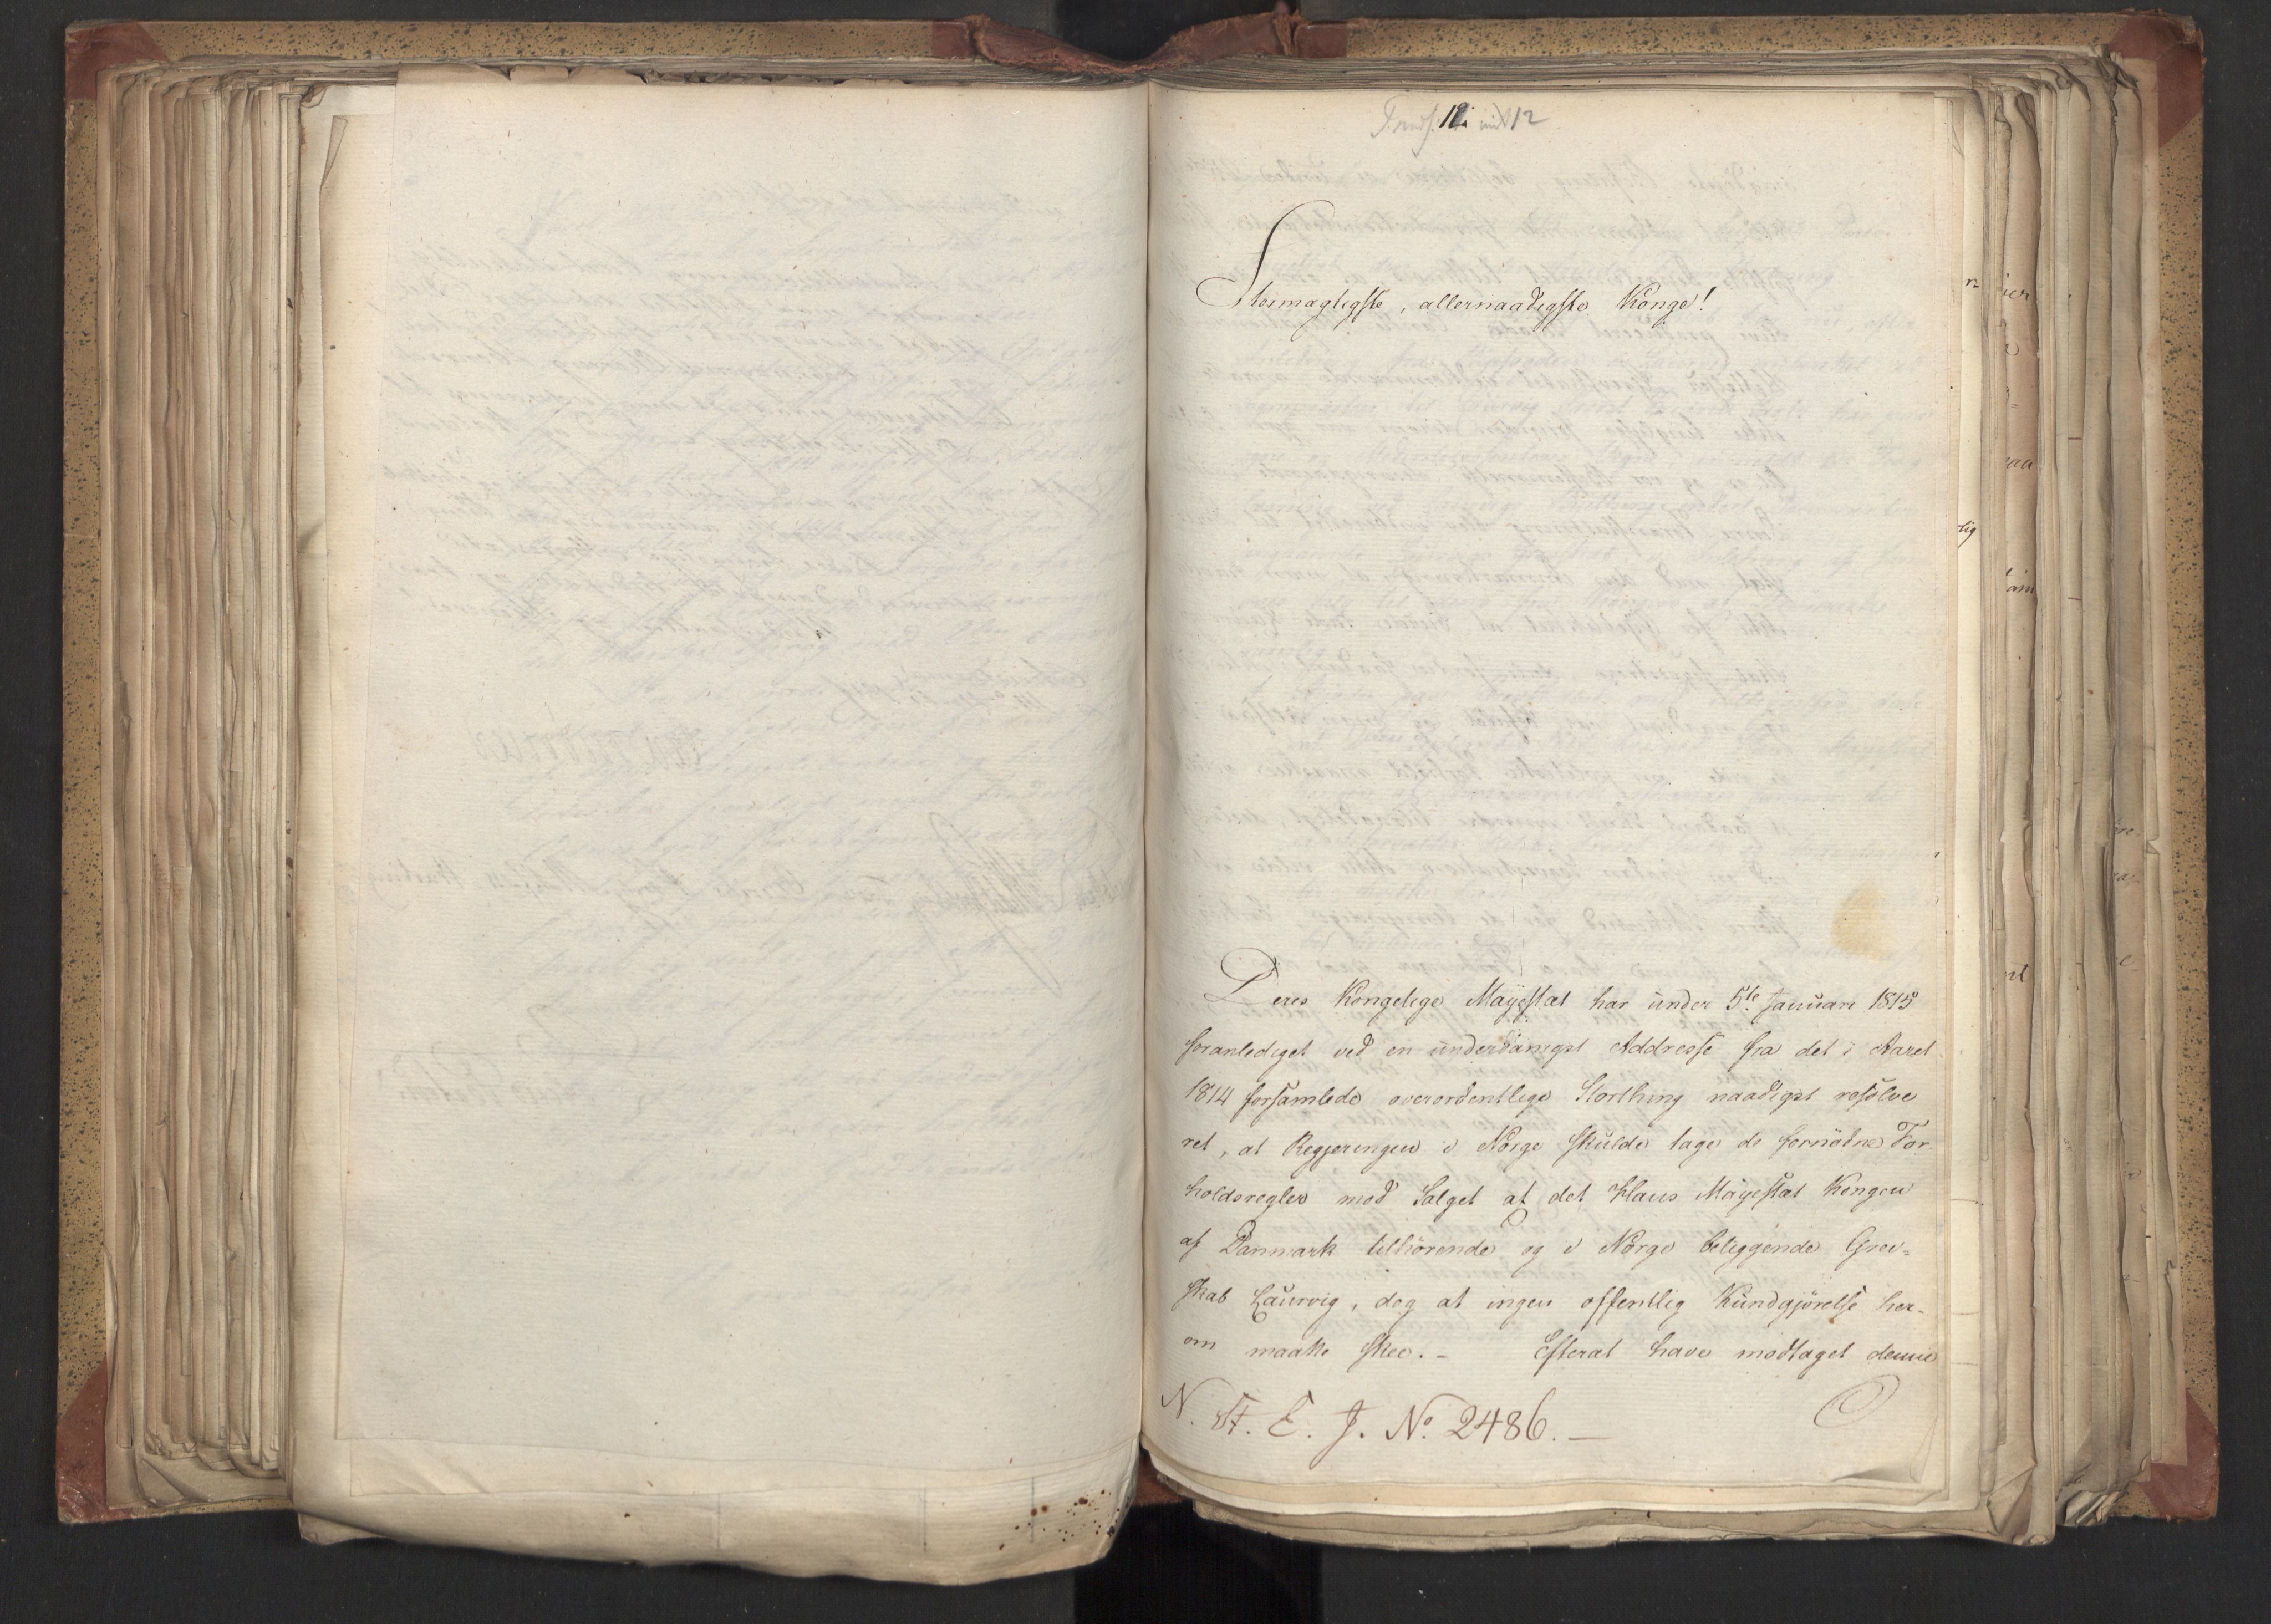 12
Stormægtigste, allernaadigste Konge!
Deres Kongelige Majestæt har under 5te Januari 1815
foranlediget ved en underdanigst Addresse fra det i Aaret
1814 forsamlede overordentlige Storthing naadigst resolve
ret, at Regjeringen i Norge skulde tage de fornødne For
holdsregler mod Salget af det Hans Majestæt Kongen
af Danmark tilhörende og i Norge beliggende Grev=
skab Laurvig, dog at ingen offentlig Kundgjörelse her-
om maatte skee. - Efterat have modtaget denne
N. St. E. J. No. 2486. —